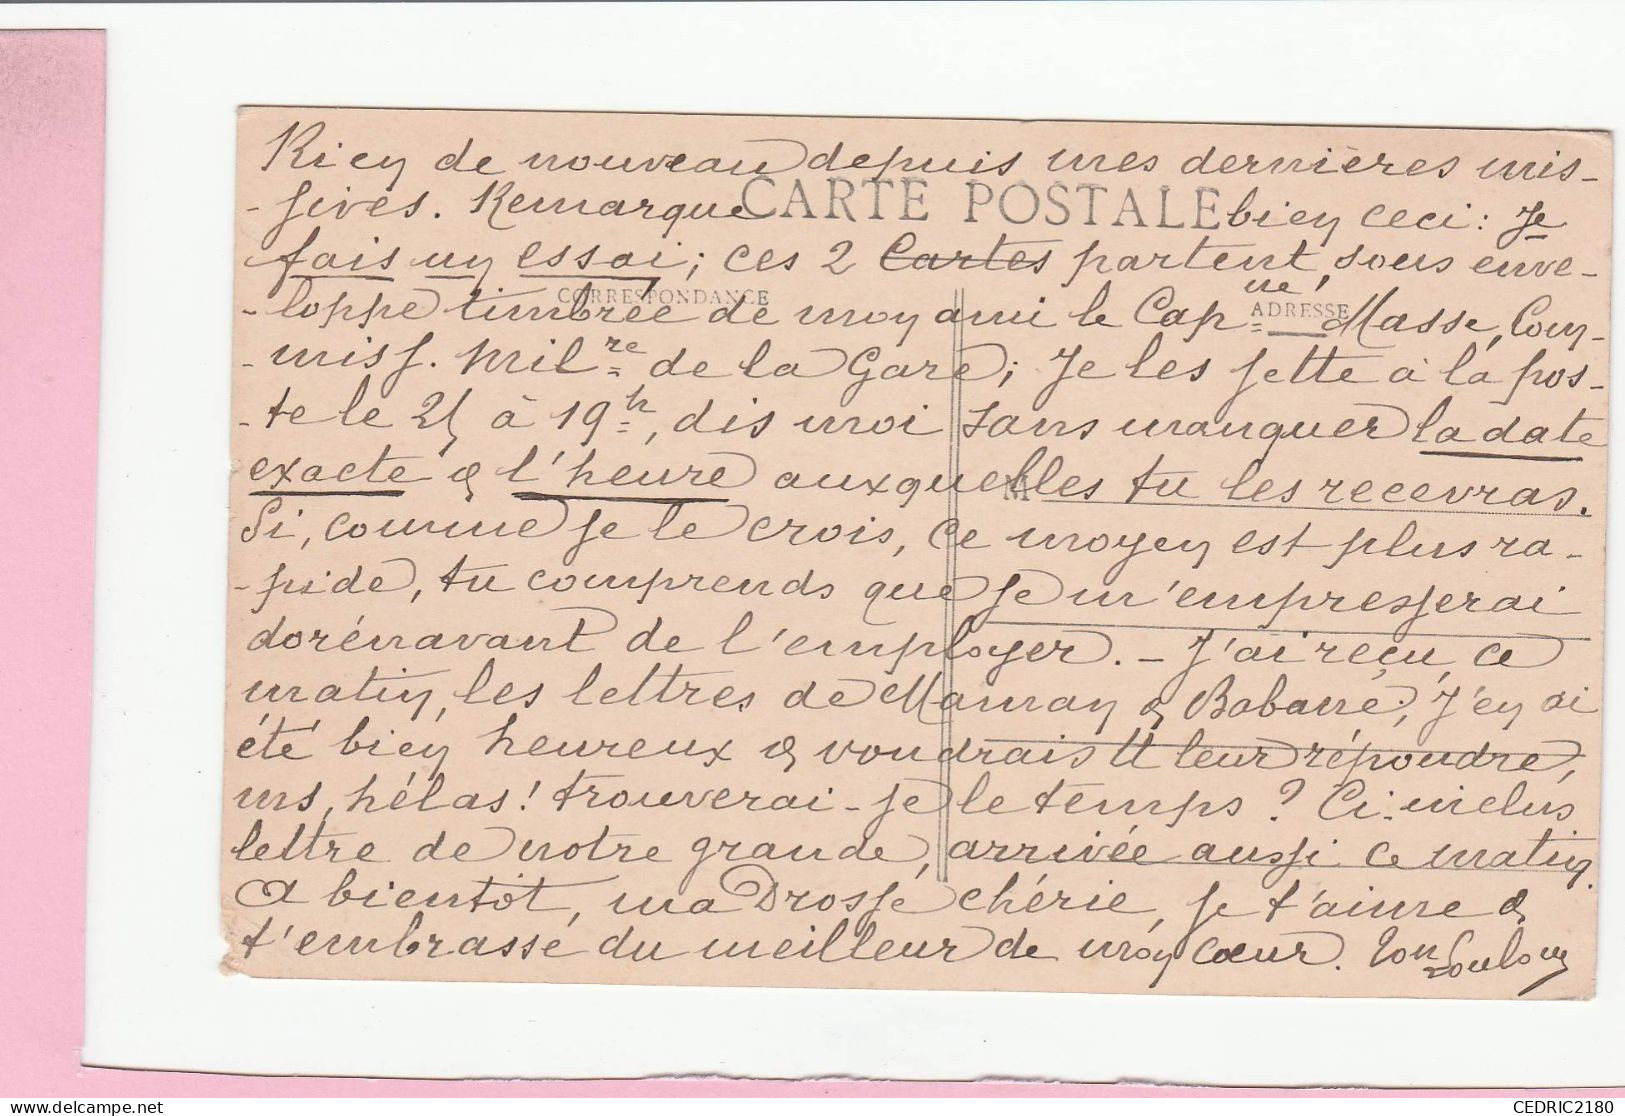 Rien de nouveau depuis mes dernières mis-
-sives. Remarque bien ceci : Je
CARTE POSTALE
fais un essai ; ces 2 Cartes partent, sous enve-
CORRESPONDANCE
ADRESSE
-loppe timbrée de mon ami le Cap ne Masse, Com-
-miss. Mil re de la Gare ; Je les jette à la pos-
-te le 25 à 19 h, dis moi sans manquer la date
exacte & l'heure auxquelles tu les recevras.
M
Si, comme je le crois, ce moyen est plus ra-
-pide, tu comprends que je m'empresserai
dorénavant de l'employer. - J'ai reçu, ce
matin, les lettres de Maman & Babarre, J'en ai
été bien heureux & voudrais tt leur répondre,
ms, hélas ! trouverai-je le temps ? Ci-inclus
lettre de notre grande, arrivée aussi ce matin.
A bientôt, ma Drosse chérie, je t'aime &
t'embrasse du meilleur de mon cœur. Ton Loulou
CEDRIC2180